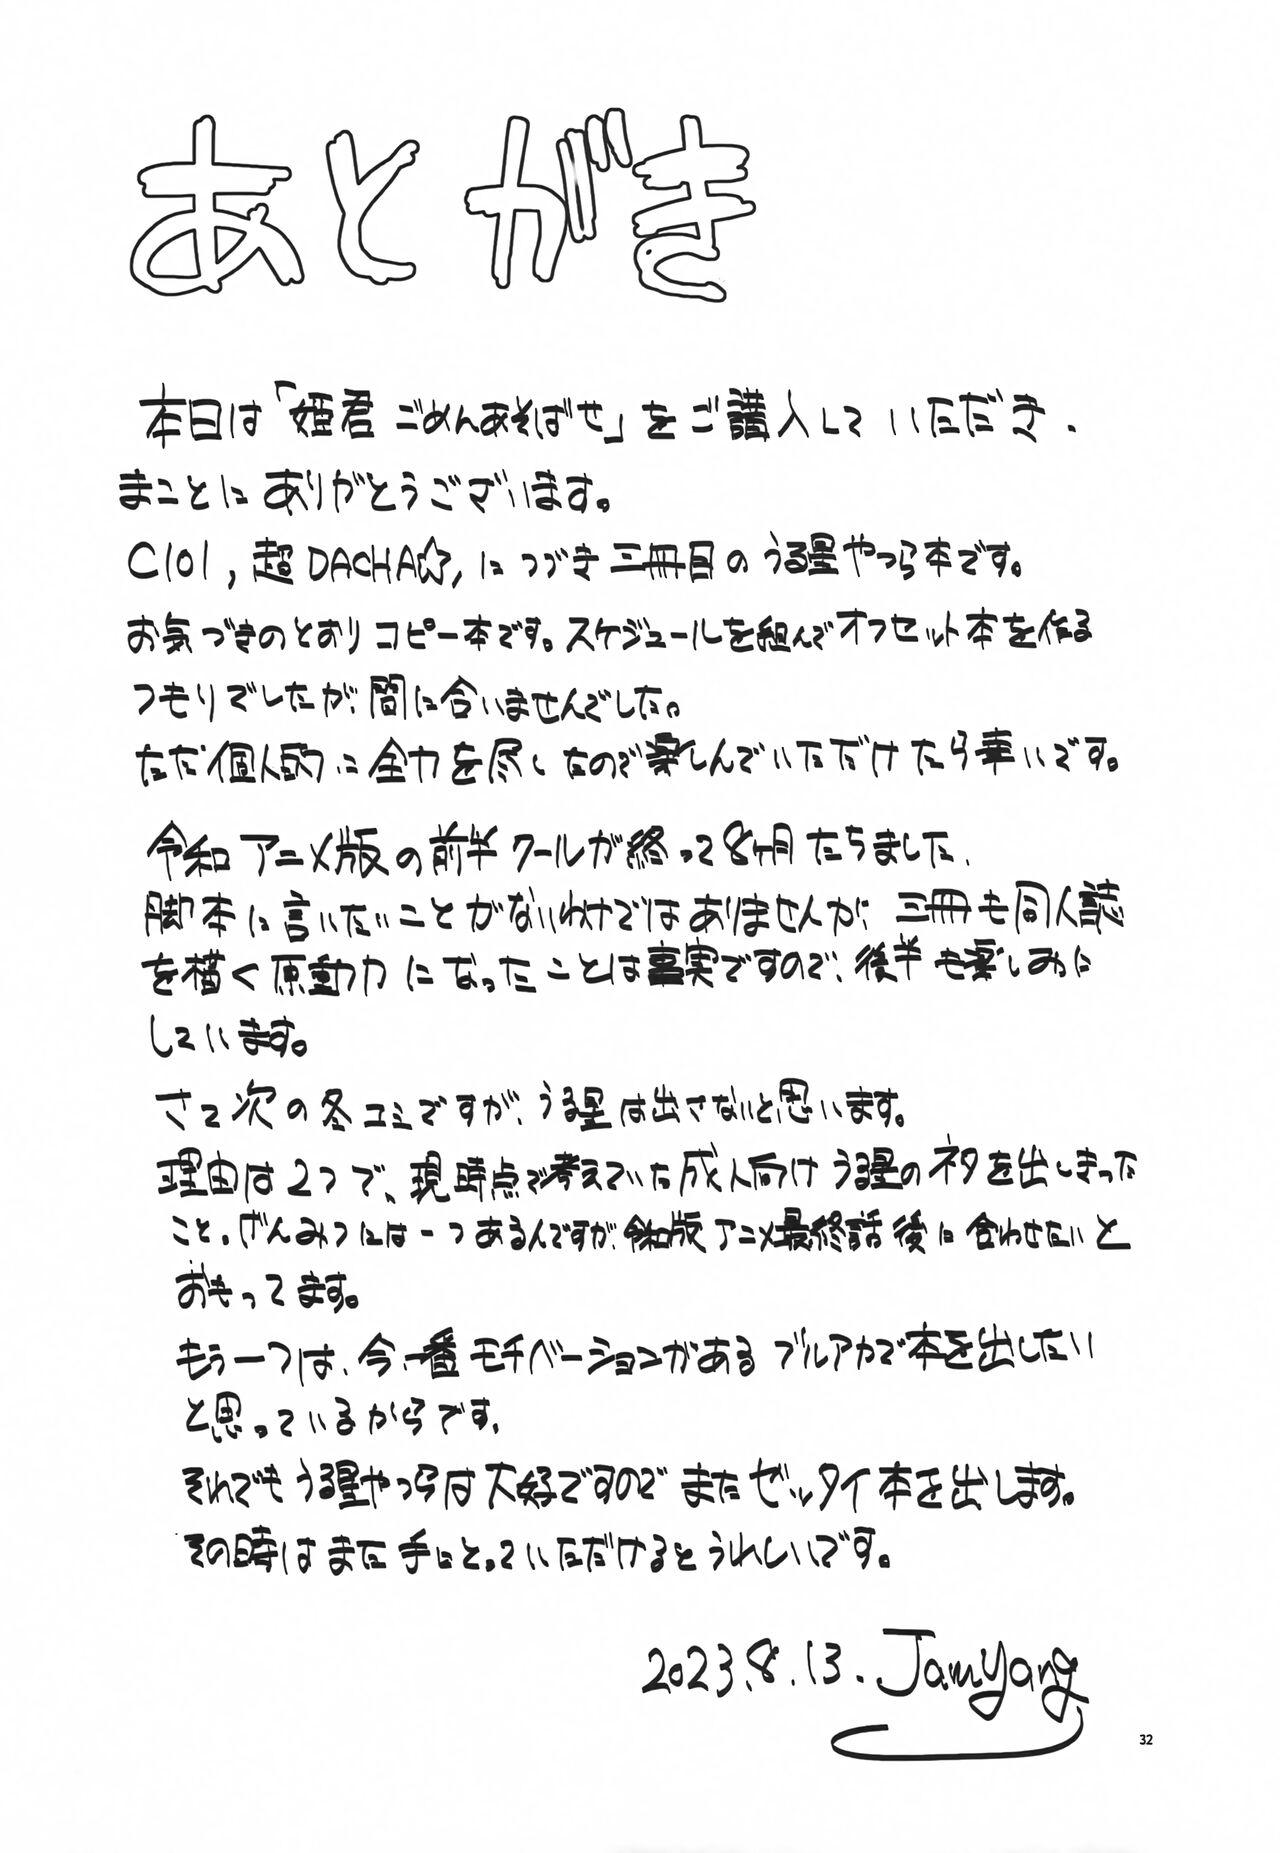 あとがき
本日は「姫君ごめんあそばせ」をご購入していただき、
まことにありがとうございます。
C101,超DACHA☆,につづき三冊目のうる星やつら本です。
お気づきのとおりコピー本です。スケジュールを組んでオフセット本を作る
つもりでしたが、間に合いませんでした。
ただ個人的に全力を尽したので楽しんでいただけたら幸いです。
令和アニメ版の前半クールが終って8ヶ月たちました、
脚本に言いたいことがないわけではありませんが、三冊も同人誌
を描く原動力になったことは事実ですので、後半も楽しみに
しています。
さて次の冬コミですが、うる星は出さないと思います。
理由は2つで、現時点で考えていた成人向けうる星のネタを出しきった
こと。げんみつには一つあるんですが、令和版アニメ最終話後に合わせたいと
おもってます。
もう一つは、今一番モチベーションがあるブルアカで本を出したい
と思っているからです、
それでもうる星やつらは大好ですのでまたゼッタイ本を出します。
その時はまた手にとっていただけるとうれしいです。
2023.8.13.JamYang
32